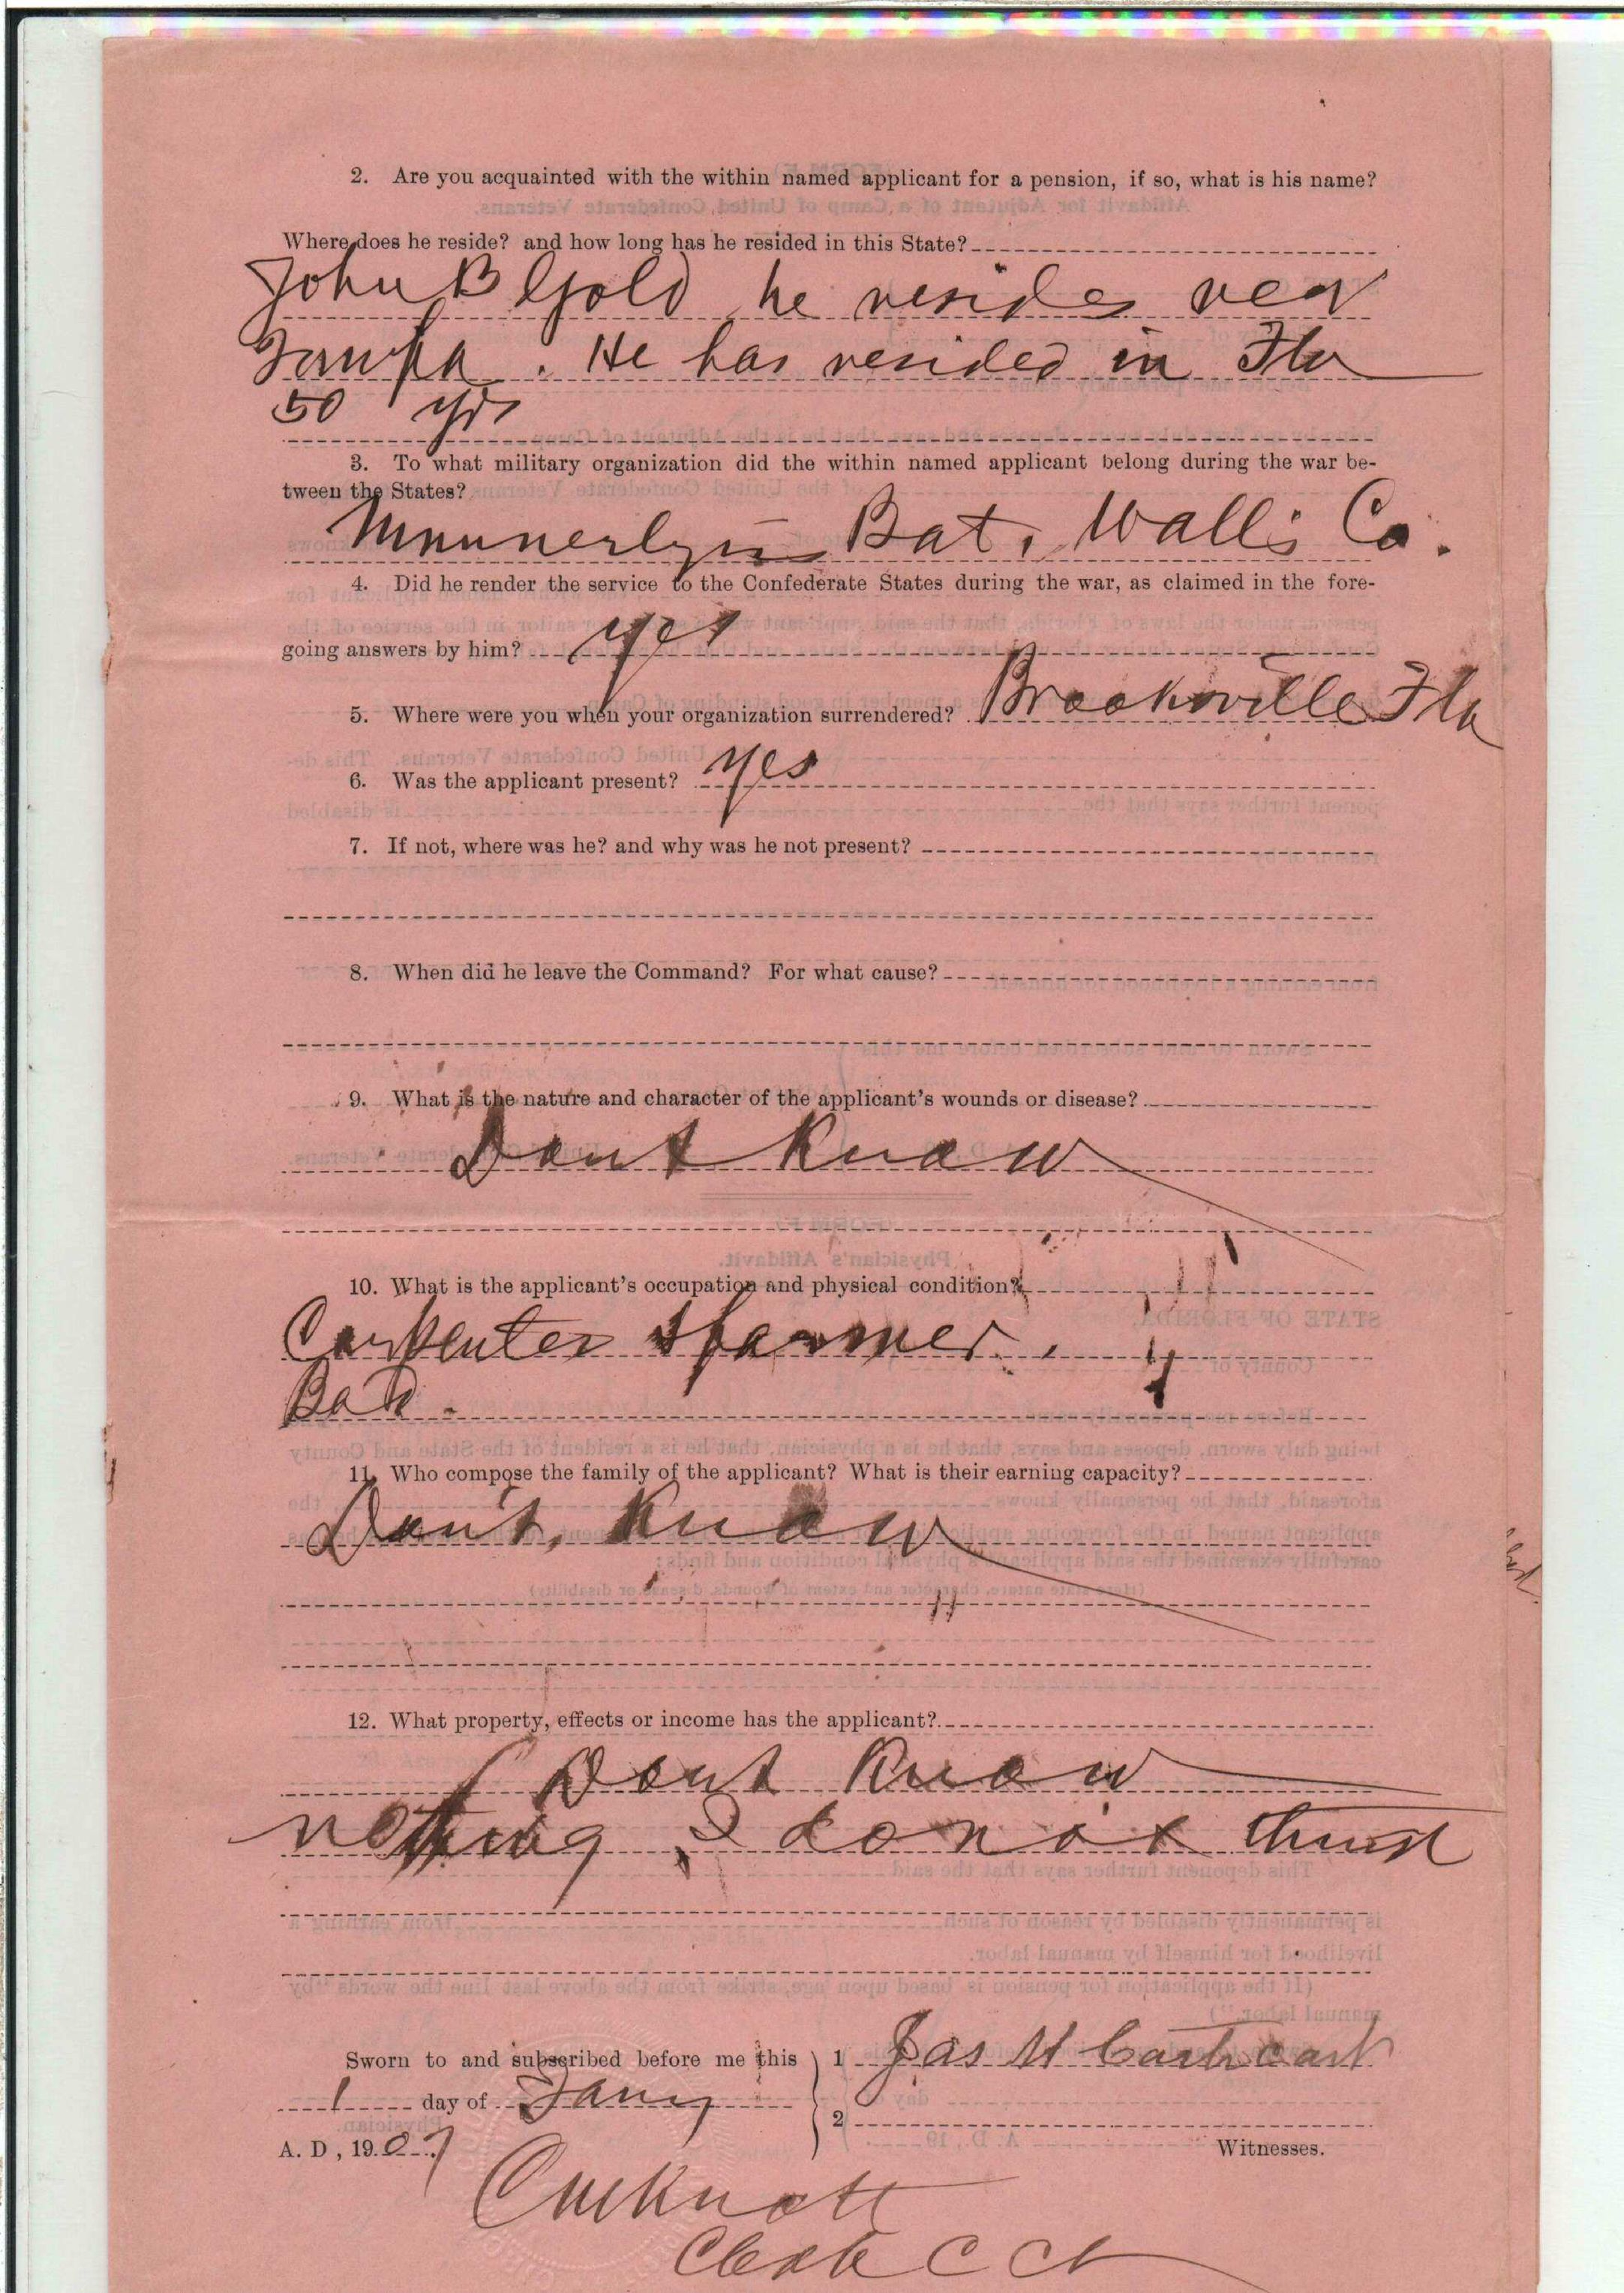 2. Are you acquainted with the within named applicant for a pension, if so, what is his name?
Where does he reside? and how long has he resided in this State?
John B Gold he resides near
Tampa. He has resided in Fla
50 yrs
3. To what military organization did the within named applicant belong during the war be-
tween the States?
Munnerlyns Bat. Wallis Co.
4. Did he render the service to the Confederate States during the war, as claimed in the fore-
going answers by him? yes
5. Where were you when your organization surrendered? Brooksville Fla
6. Was the applicant present? yes
7. If not, where was he? and why was he not present?
8. When did he leave the Command? For what cause?
9. What is the nature and character of the applicant's wounds or disease?
Dont Know
10. What is the applicant's occupation and physical condition?
Carpenter & farmer.
Bad.
11. Who compose the family of the applicant? What is their earning capacity?
Don't, Know
12. What property, effects or income has the applicant?
Dont Know
nothing I do not think
Sworn to and subscribed before me this 1 Jas H Cathcart
1 day of Jany
2
A. D., 1907
Witnesses.
Knott
Clerk C Ct